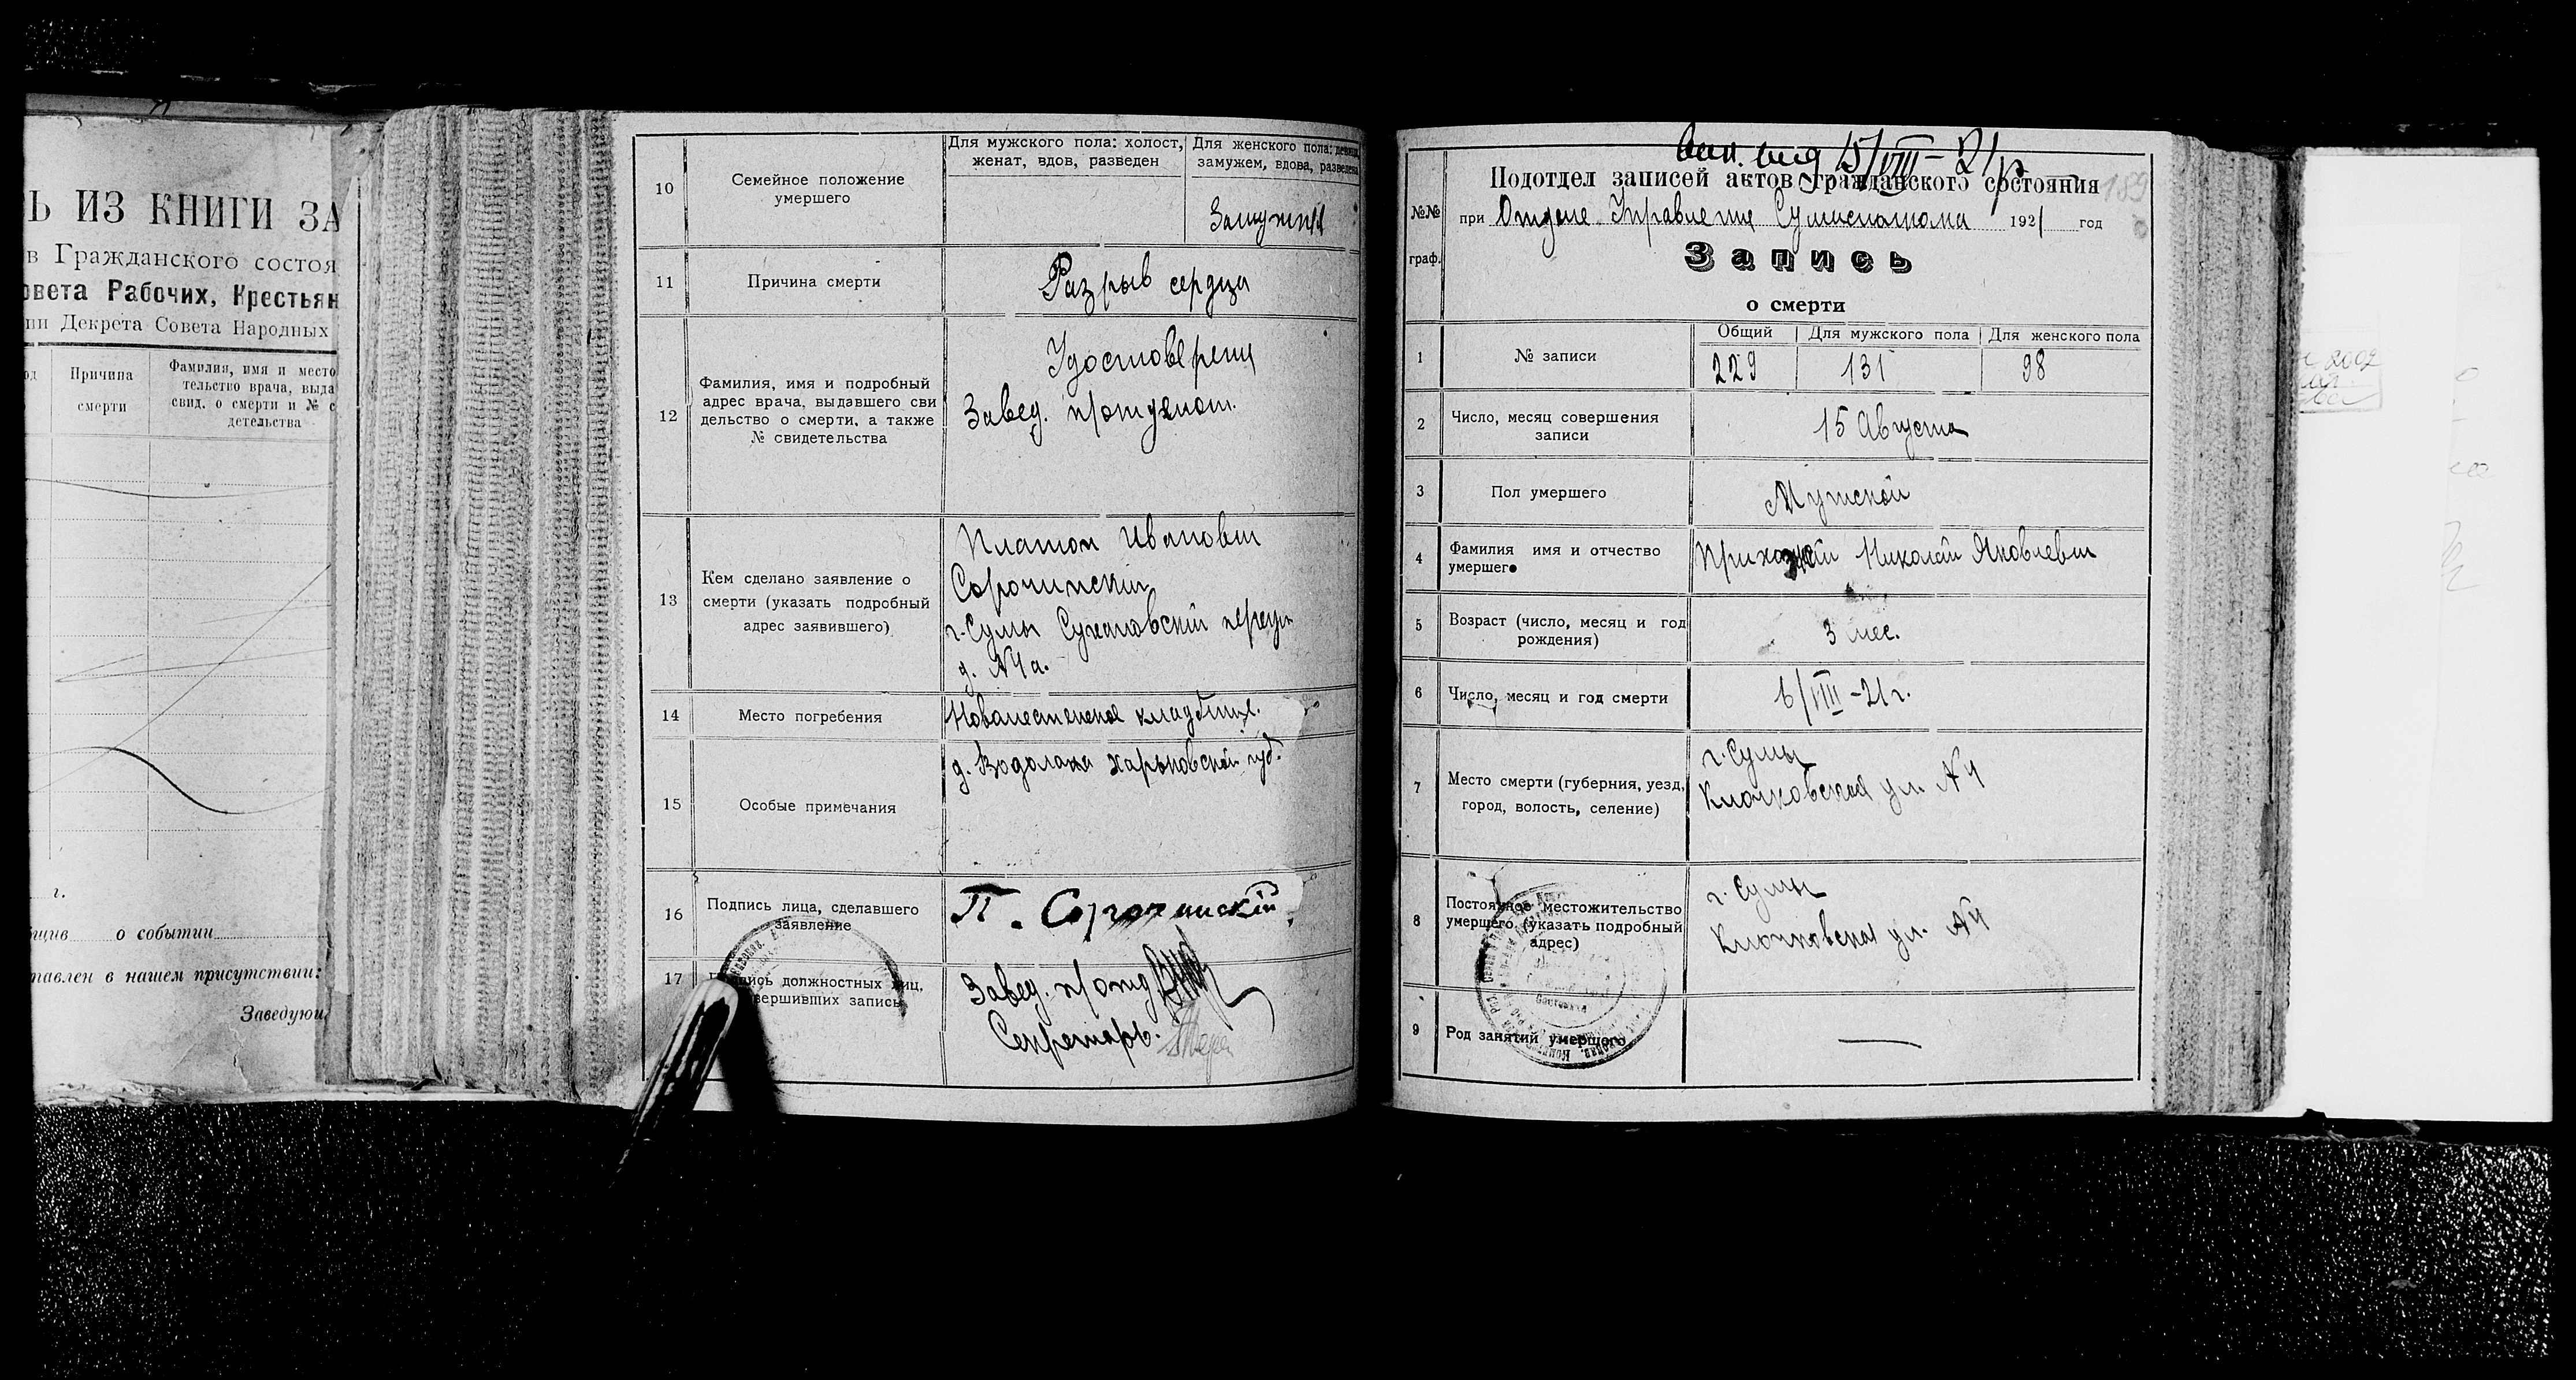 Ь ИЗ КНИГИ ЗА
в Гражданского состоя
овета Рабочих, Крестьян
ии Декрета Совета Народных
Причина
смерти
Фамилия, имя и место
тельство врача, выда
свид. о смерти и № с
детельства
г.
о событии
тавлен в нашем присутствии:
Заведую
10
Семейное положение
умершего
Для мужского пола: холост,
женат, вдов, разведен
Для женского пола: девица,
замужем, вдова, разведена
Замужняя
11
Причина смерти
Разрыв сердца
12
Фамилия, имя и подробный
адрес врача, выдавшего сви
дельство о смерти, а также
№ свидетельства
Удостоверение
Завед. п/отделом.
13
Кем сделано заявление о
смерти (указать подробный
адрес заявившего)
Платон Иванович
Сорочинский
г. Сумы Сухановский переул
д. №4а.
14
Место погребения
кладбище.
15
Особые примечания
д. Водолага Харьковской губ.
16
Подпись лица, сделавшего
заявление
П. Сорочинскій
17
Подпись должностных лиц,
совершивших запись
Завед. п/отд
Секретарь.
15/VIII-21г
№№
граф.
Подотдел записей актов гражданского состояния
189
при Отделе Управления Сумисполкома 1921 год
Запись
о смерти
1
№ записи
Общий
Для мужского пола
Для женского пола
229
131
98
2
Число, месяц совершения
записи
15 Августа
3
Пол умершего
Мужской
4
Фамилия имя и отчество
умершего
Приходжий Николай Яковлевич
5
Возраст (число, месяц и год
рождения)
3 мес.
6
Число, месяц и год смерти
6/VIII-21г.
7
Место смерти (губерния, уезд,
город, волость, селение)
г. Сумы
Клочковская ул. №4
8
Постоянное местожительство
умершего (указать подробный
адрес)
г. Сумы
Клочковская ул. №4
9
Род занятий умершего
—